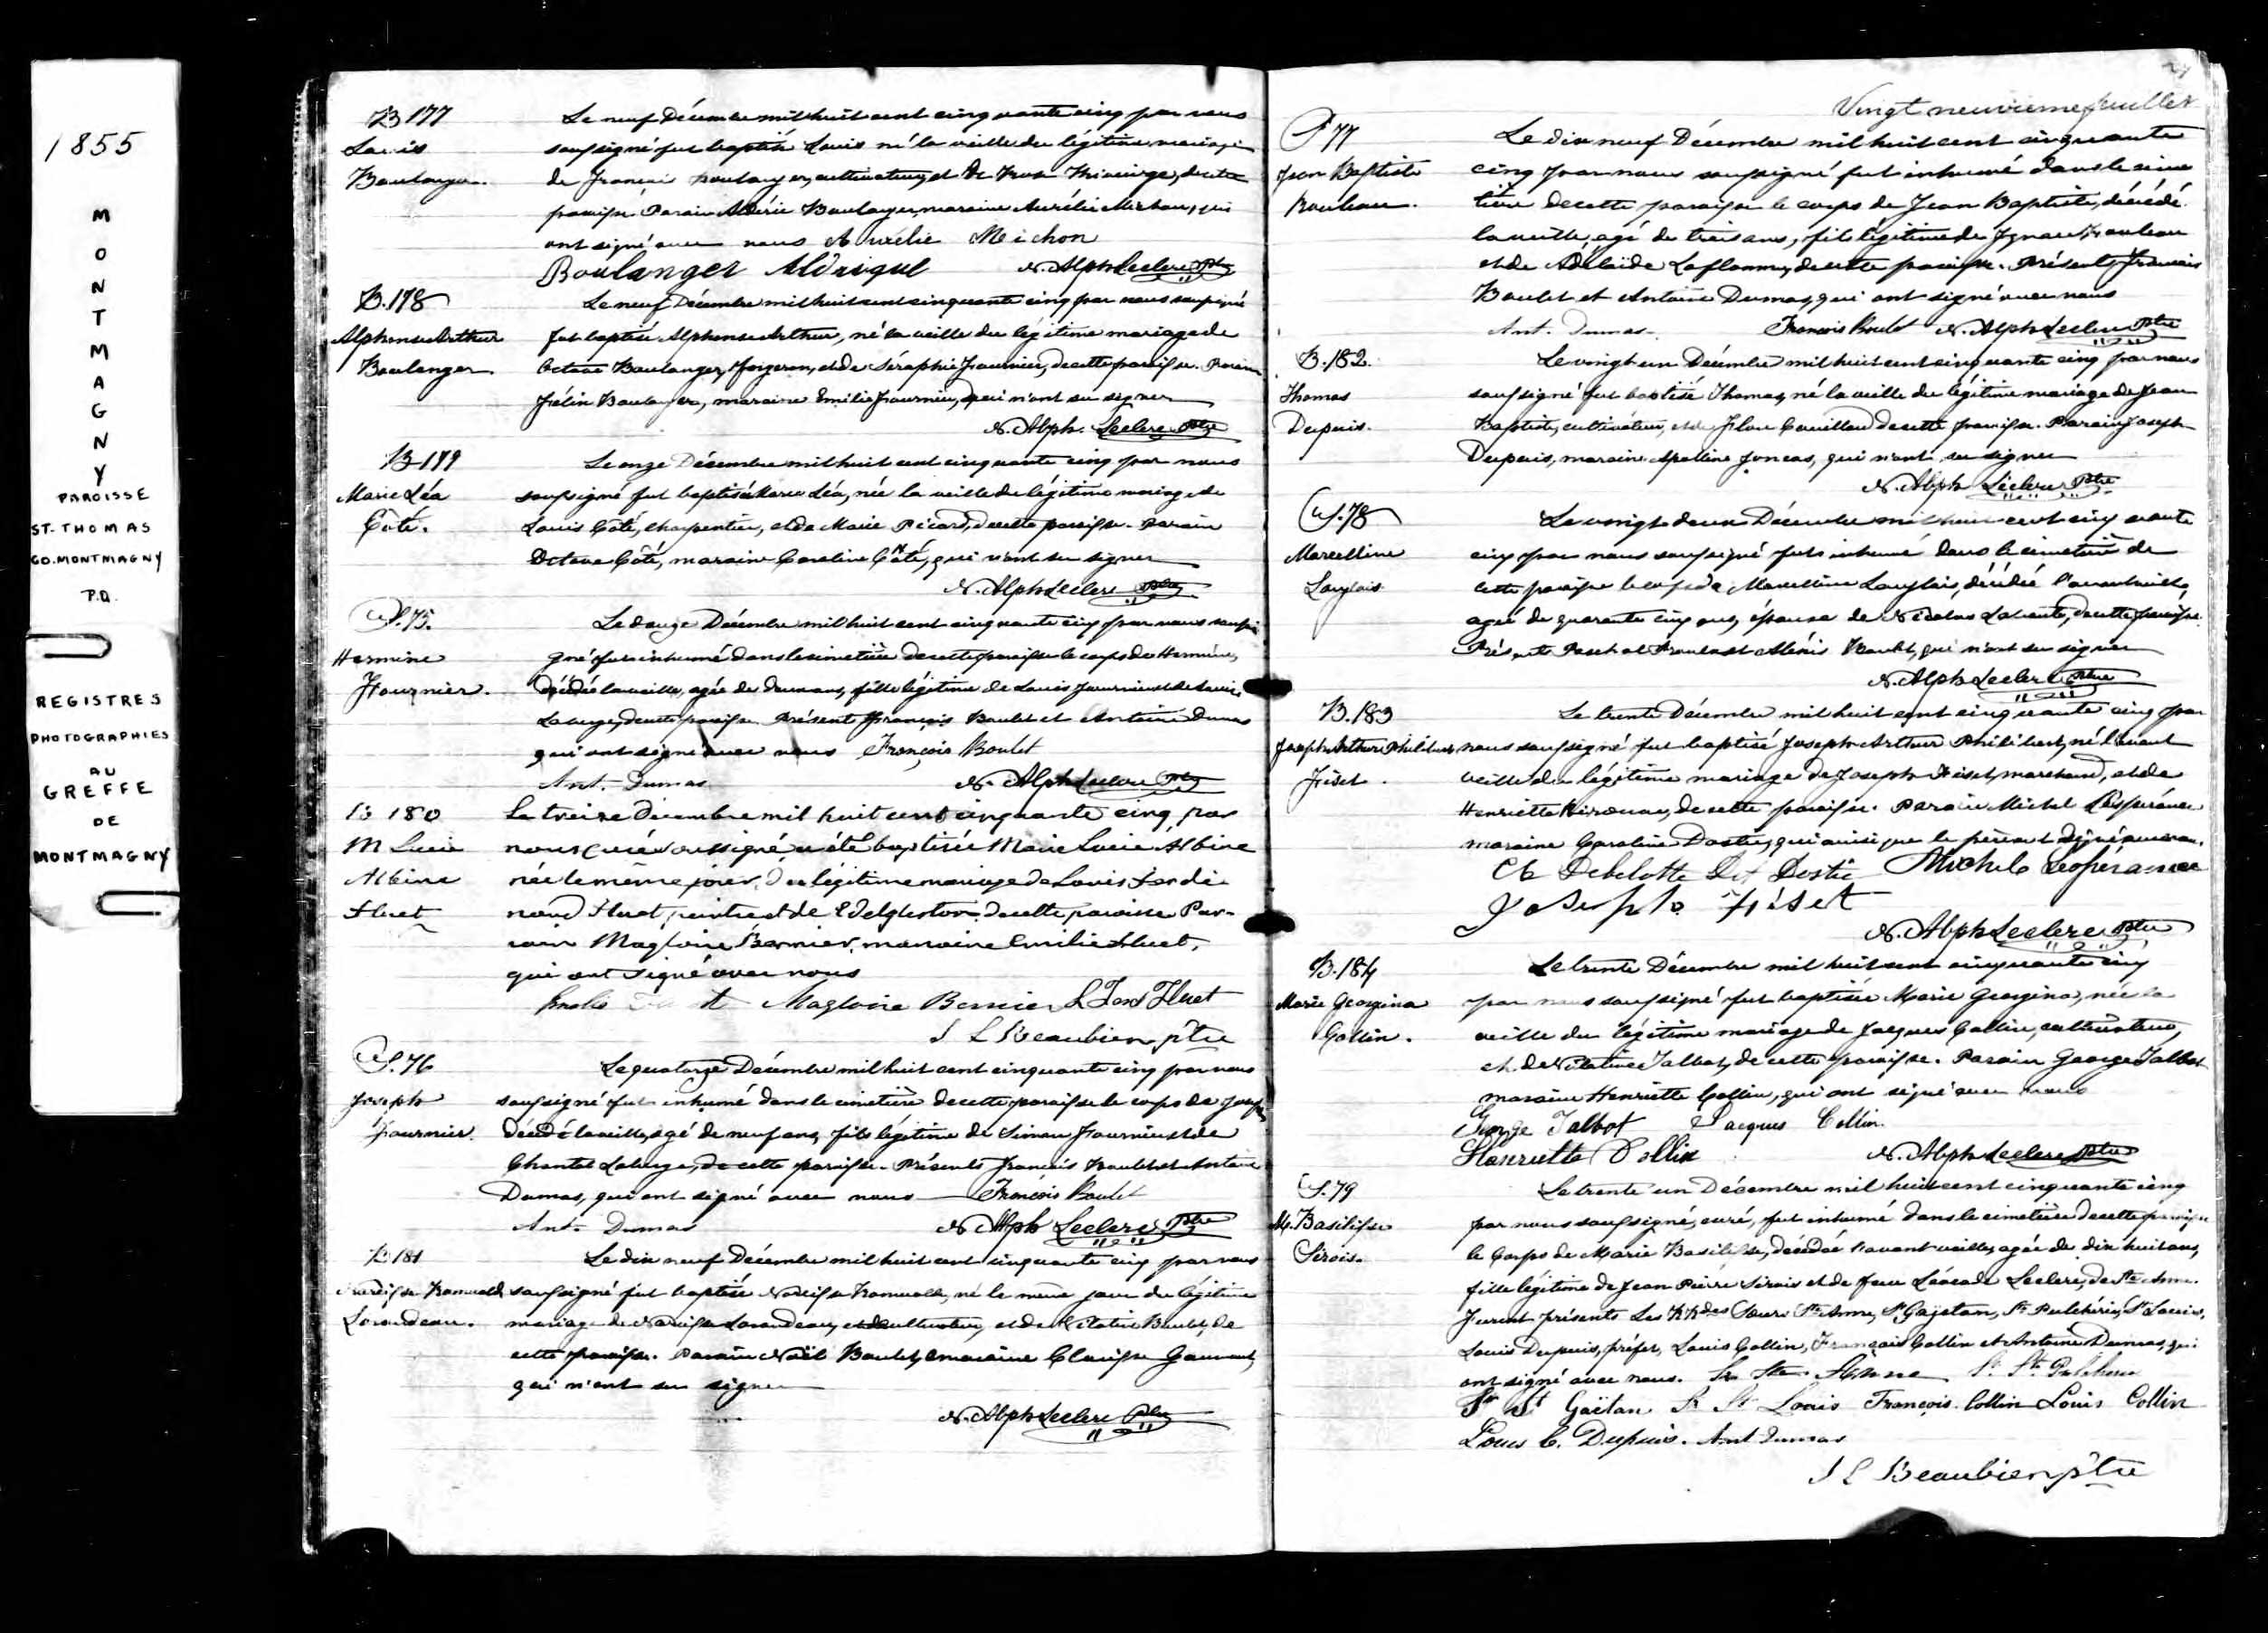 1855
MONTMAGNY
PAROISSE
ST. THOMAS
CO. MONTMAGNY
P.Q.
REGISTRES
PHOTOGRAPHIES
AU
GREFFE
DE
MONTMAGNY
B 177
Louis
Boulanger.
Le neuf Décembre mil huit cent cinquante cinq par nous
soussigné fut baptisé Louis né la veille du légitime mariage
de François Boulanger, cultivateur, et de decette
paroisse. Parain Boulanger, maraine Aurélie Michon, qui
ont signé avec nous Aurélie Michon
Boulanger Aldérique N. Alph Leclerc Ptre
B. 178
Alphonse Arthur
Boulanger
Le neuf Décembre mil huit cent cinquante cinq par nous soussigné
fut baptisé Alphonse Arthur, né la veille du légitime mariage de
Octave Boulanger, forgeron, et de Séraphie Fournier, de cette paroisse. Parain
Félix Boulanger, maraine Emilie Fournier, qui n'ont su signer
N. Alph. Leclerc Ptre
B 179
Marie Léa
Côté.
Le onze Décembre mil huit cent cinquante cinq par nous
soussigné fut baptisée Marie Léa, née la veille du légitime mariage de
Louis Côté, charpentier, et de Marie Picard, de cette paroisse. Parain
Octave Côté, maraine Caroline Côté, qui n'ont su signer
N. Alph Leclerc Ptre
S. 75.
Hermine
Fournier.
Le douze Décembre mil huit cent cinquante cinq par nous soussi
gné fut inhumé dans le cimetière de cette paroisse le corps de Hermine,
décédée la veille, agée de deux ans, fille légitime de Louis Fournier et de
Laberge, de cette paroisse. Présents François Boulet et Antoine Dumas
qui ont signé avec nous François Boulet
Ant. Dumas N. Alph Leclerc Ptre
B 180
M Lucie
Albine
Huet
Le treize Décembre mil huit cent cinquante cinq par
nous curé soussigné a été baptisée Marie Lucie Albine
née le même jour, du légitime mariage de Louis Ferdi
nand Huet, peintre et de de cette paroisse Par-
rain Magloire Bernier, marraine Emilie Huet,
qui ont signé avec nous
Magloire Bernier L Ferd Huet
J L Beaubien ptre
S. 76
Joseph
Fournier.
Le quatorze Décembre mil huit cent cinquante cinq par nous
soussigné fut inhumé dans le cimetière de cette paroisse le corps de Joseph
décédé la veille, agé de neuf ans, fils légitime de Simon Fournier et de
Chantal Laberge, de cette paroisse. Présents François Boulet et Antoine
Dumas, qui ont signé avec nous François Boulet
Ant. Dumas N Alph Leclerc Ptre
B 181
Narcisse Romuald
Lavoie
Le dix neuf Décembre mil huit cent cinquante cinq par nous
soussigné fut baptisé Narcisse Romuald, né le même jour du légitime
mariage de Narcisse et de Boulet, de
cette paroisse. Parain Noël Boulet, maraine Clarisse
qui n'ont su signer
N. Alph Leclerc Ptre
Vingt neuvième feuillet
S 77
Jean Baptiste
Rouleau.
Le dix neuf Décembre mil huit cent cinquante
cinq par nous soussigné fut inhumé dans le cime
tière de cette paroisse le corps de Jean Baptiste, décédé
la veille, agé de trois ans, fils légitime de Ignace Rouleau
et de Adélaïde Laflamme, de cette paroisse. Présents François
Boulet et Antoine Dumas, qui ont signé avec nous
Ant. Dumas. François Boulet N. Alph Leclerc Ptre
B. 182.
Thomas
Dupuis.
Le vingt un Décembre mil huit cent cinquante cinq par nous
soussigné fut baptisé Thomas, né la veille du légitime mariage de Jean
Baptiste, cultivateur, et de Flore Couillard de cette paroisse. Parain Joseph
Dupuis, maraine Apolline Joncas, qui n'ont su signer
N. Alph Leclerc Ptre
S. 78
Marcelline
Langlais
Le vingt deux Décembre mil huit cent cinquante
cinq par nous soussigné fut inhumé dans le cimetière de
cette paroisse le corps de Marcelline Langlais, décédée l'avant veille,
agée de quarante cinq ans, épouse de Nicolas de cette paroisse.
Présents Paschal et Alexis Boulet, qui n'ont su signer
N. Alph Leclerc Ptre
B. 183
Joseph Arthur Philibert
Fiset.
Le trente Décembre mil huit cent cinquante cinq par
nous soussigné fut baptisé Joseph Arthur Philibert, né l'avant
veille du légitime mariage de Joseph Fiset, marchand, et de
Henriette Kirouac, de cette paroisse. Parain Michel Lespérance
maraine Caroline Dostie, qui ainsi que le père ont signé avec nous.
Debelotte Dit Dostie Michel Lespérance
Joseph Fiset
N. Alph Leclerc Ptre
B. 184
Marie Georgina
Collin.
Le trente Décembre mil huit cent cinquante cinq
par nous soussigné fut baptisée Marie Georgina, née la
veille du légitime mariage de Jacques Collin, cultivateur,
et de Talbot, de cette paroisse. Parain George Talbot
maraine Henriette Collin, qui ont signé avec nous
George Talbot Jacques Collin.
Henriette Collin N. Alph Leclerc Ptre
S. 79
M. Basilisse
Sirois.
Le trente un Décembre mil huit cent cinquante cinq
par nous soussigné, curé, fut inhumé dans le cimetière de cette paroisse
le Corps de Marie Basilisse, décédée l'avant veille, agée de dix huit ans,
fille légitime de Jean Pierre Sirois et de feue Léocade Leclerc, de Ste Anne.
Furent présents Les Rdes Soeurs Ste Anne, St Gajetan, Ste Pulchérie, St Louis,
Louis Dupuis, préfet, Louis Collin, François Collin et Antoine Dumas, qui
ont signé avec nous. Sr Ste Anne Sr Ste Pulchérie
Sr St Gaëtan Sr St Louis François Collin Louis Collin
Louis C. Dupuis. Ant Dumas
J L Beaubien ptre